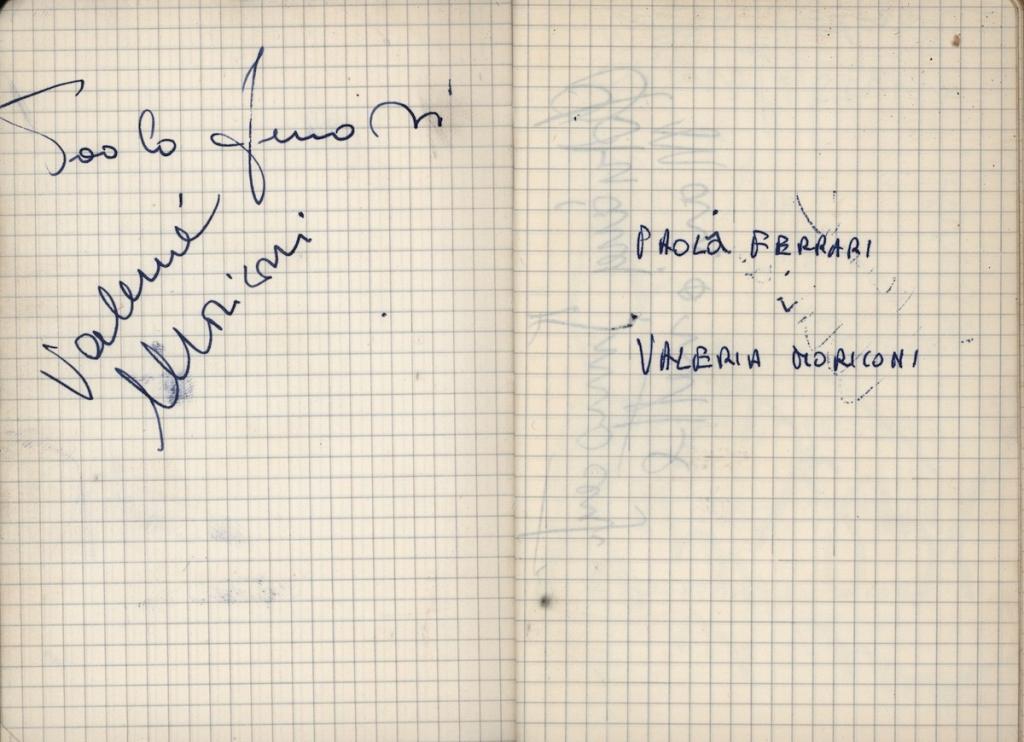 Paolo Ferrari
Valeria
Moriconi
PAOLA FERRARI
VALERIA MORICONI